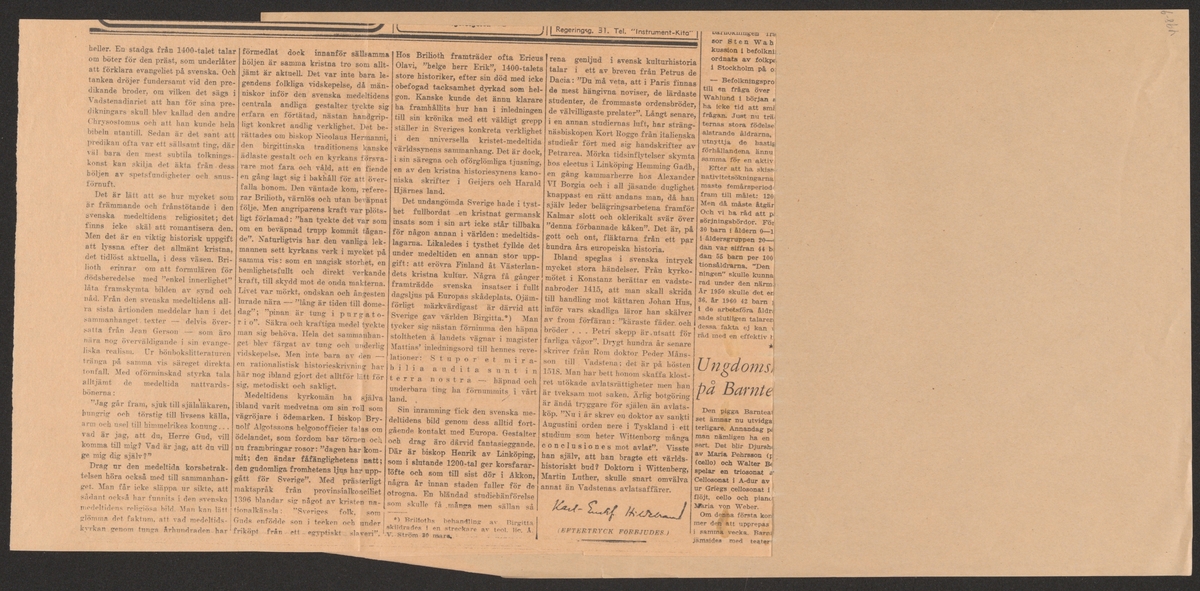 Regeringsg. 31. Tel. "Instrument-Kita"
heller. En stadga från 1400-talet talar
om böter för den präst, som underlåter
att förklara evangeliet på svenska. Och
tanken dröjer fundersamt vid den pre-
dikande broder, om vilken det säga i
Vadstenadiariet att han för sina pre-
dikningars skull blev kallad den andre
Chrysostomus och att han kunde hela
bibeln utantill. Sedan är det sant att
predikan ofta var ett sällsamt ting, där
väl bara den mest subtila tolknings-
konst kan skilja det äkta från dess
höljen av spetsfundigheter och snus-
förnuft.
Det är lätt att se hur mycket som
är främmande och frånstötande i den
svenska medeltidens religiositet; det
finns icke skäl att romantisera den.
Men det är en viktig historisk uppgift
att lyssna efter det allmänt kristna,
det tidlöst aktuella, i dess väsen. Bri-
lioth erinrar om att formulären för
dödsberedelse med "enkel innerlighet"
låta framskymta bilden av synd och
nåd. Från den svenska medeltidens all-
ra sista årtionden meddelar han i det
sammanhanget texter — delvis över-
satta från Jean Gerson — som äro
nära nog överväldigande i sin evange-
liska realism. Ur bönboksliteraturen
tränga på samma vis säreget direkta
tonfall. Med oförminskad styrka tala
alltjämt de medeltida nattvards-
bönerna:
"Jag går fram, sjuk till själaläkaren,
hungrig och törstig till livsens källa,
arm och usel till himmelrikes konung...
vad är jag, att du, Herre Gud, vill
komma till mig? Vad är jag, att du vill
ge mig dig själv?"
Drag ur den medeltida korsbetrak-
telsen höra också med till sammanhan-
get. Man får icke släppa ur sikte, att
sådant också har funnits i den svenska
medeltidens religiösa bild. Man kan lätt
glömma det faktum, att vad medeltids-
kyrkan genom tunga århundraden har
förmedlat dock innanför sällsamma
höljen är samma kristna tro som allt-
jämt är aktuell. Det var inte bara le-
gendens folkliga vidskepelse, då män-
niskor inför den svenska medeltidens
centrala andliga gestalter tyckte sig
erfara en förtätad, nästan handgrip-
ligt konkret andlig verklighet. Det be-
rättades om biskop Nicolaus Hermanni,
den birgittinska traditionens kanske
ädlaste gestalt och en kyrkans försva-
rare mot fara och våld, att en fiende
en gång lagt sig i bakhåll för att över-
falla honom. Den väntade kom, refere-
rar Brilioth, värnlös och utan beväpnat
följe. Men angriparens kraft var plöts-
ligt förlamad: "han tyckte det var som
om en beväpnad trupp kommit tågan-
de". Naturligtvis har den vanliga lek-
mannen sett kyrkans verk i mycket på
samma vis: som en magisk storhet, en
hemlighetsfullt och direkt verkande
kraft, till skydd mot de onda makterna.
Livet var mörkt, ondskan och ångesten
lurade nära — "lång är tiden till dome-
dag"; "pinan är tung i purgato-
rio". Säkra och kraftiga medel tyckte
man sig behöva. Hela det sammanhan-
get blev färgat av tung och nederlig
vidskepelse. Men inte bara av den —
en rationalistisk historieskrivning har
här nog ibland gjort det alltför lätt för
sig, metodiskt och sakligt.
Medeltidens kyrkomän ha själva
ibland varit medvetna om sin roll som
vägröjare i ödemarken. I biskop Bry-
nolf Algotssons helgonofficier talas om
ödelandet, som fordom bar törnen och
nu frambringar rosor: "dagen har kom-
mit; den ändar fåfänglighetens natt;
den gudomliga fromhetens ljus har upp-
gått för Sverige". Med prästerligt
maktspråk från provinsialkonciliet
1396 blandar sig något av kristen na-
tionalkänsla: "Sveriges folk, som
Guds enfödde son i tecken och under
friköpt från ett egyptiskt slaveri".
Hos Brilioth framträder ofta Ericus
Olavi, "helge herr Erik", 1400-talets
store historiker, efter sin död med icke
obefogad tacksamhet dyrkad som hel-
gon. Kanske kunde det ännu klarare
ha framhållits hur han i inledningen
till sin krönika med ett väldigt grepp
ställer in Sveriges konkreta verklighet
i den universella kristet-medeltida
världssynens sammanhang. Det är dock,
i sin säregna och oförglömliga tjusning,
en av den kristna historiesynens kano-
niska skrifter i Geijers och Harald
Hjärnes land.
Det undangömda Sverige hade i tyst-
het fullbordat en kristnat germansk
insats som i sin art icke står tillbaka
för någon annan i världen: medeltids-
lagarna. Likaledes i tysthet fylldes det
under medeltiden en annan stor upp-
gift: att erövra Finland åt Västerlan-
dets kristna kultur. Några få gånger
framträdde svenska insatser i fullt
dagsljus på Europas skådeplats. Ojäm-
förligt märkvärdigast är därvid att
Sverige gav världen Birgitta.*) Man
tycker sig nästan förnimma den häpna
stoltheten å landets vägnar i magister
Mattias' inledningsord till hennes reve-
lationer: Stupor et mira-
bilia audita sunt in
terra nostra — häpnad och
underbara ting ha förnummits i vårt
land.
Sin inramning fick den svenska me-
deltidens bild genom dess alltid fort-
gående kontakt med Europa. Gestalter
och drag äro därvid fantasieggande.
Där är biskop Henrik av Linköping,
som i slutande 1200-tal ger korsfarar-
löfte och som till sist dör i Akkon,
några år innan staden faller för de
otrogna. En bländad studiehänförelse
som skulle få många men sällan så
*) Brilioths behandling av Birgitta
skildrades i en streckare av teol. lic. A.
V. Ström 30 mars.
rena genljud i svensk kulturhistoria
talar i ett av breven från Petrus de
Dacia: "Du må veta, att i Paris finnas
de mest hängivna noviser, de lärdaste
studenter, de frommaste ordensbröder,
de välvilligaste prelater". Långt senare,
i en annan studiernas luft, har sträng-
näsbiskopen Kort Rogge från italienska
studieår fört med sig handskrifter av
Petrarca. Mörka tidsinflytelser skymta
hos electus i Linköping Hemming Gadh,
en gång kammarherre hos Alexander
VI Borgia och i all jäsande duglighet
knappast en rätt andans man, då han
själv leder belägringsarbetena framför
Kalmar slott och oklerikalt svär över
"denna förbannade kåken". Det är, på
gott och ont, fläktarna från ett par
hundra års europeiska historia.
Ibland speglas i svenska intryck
mycket stora händelser. Från kyrko-
mötet i Konstanz berättar en vadste-
nabroder 1415, att man skall skrida
till handling mot kättaren Johan Hus,
inför vars skadliga läror han skälver
av from förfäran: "käraste fäder och
bröder . . . Petri skepp är utsatt för
farliga vågor". Drygt hundra år senare
skriver från Rom doktor Peder Måns-
son till Vadstena: det är på hösten
1518. Man har bett honom skaffa klost-
ret utökade avlatsrättigheter men han
är tveksam mot saken. Ärlig botgöring
är ändå tryggare för själen än avlats-
köp. "Nu i år skrev en doktor av sankti
Augustini orden nere i Tyskland i ett
studium som heter Wittenborg många
conclusiones mot avlat". Visste
han själv, att han bragte ett världs-
historiskt bud? Doktorn i Wittenberg,
Martin Luther, skulle snart omvälva
annat än Vadstenas avlatsaffärer.
Karl-Gustaf Hildebrand
(EFTERTRYCK FÖRBJUDES.)
sor Sten Wah
kussion i befolkni
ordnats av folkpa
i Stockholm på o
— Befolkningspro
till en fråga över
Wahlund i början s
ha icke tid att smi
frågan. Just nu trä
ternas stora födelse
alstrande åldrarna,
utnyttja de hastig
förhållandena ännu
samma för en aktiv
Efter att ha skisse
nativitetsökningarna
masta femårsperiode
fram till målet: 120
Men då måste åtgär
Och vi ha råd att p
sörjningsbördor. För
50 barn i åldern 0—1
i åldersgruppen 20—
dan var siffran 54 b
dan 55 barn per 100
tionsåldrarna. "Den
ningen" skulle kunna
rad under den närma
År 1950 skulle det en
36, år 1960 42 barn
I de arbetsföra åldra
sade slutligen talaren
dessa fakta ej kan
råd med en effektiv
Ungdoms
på Barnte
Den pigga Barnteat
set ämnar nu utvidga
terligare. Annandag p
man nämligen ha en
sert. Det blir Djursh
av Maria Fehrsson (p
(cello) och Walter B
spelar en triosonat a
Cellosonat i A-dur av
ur Griegs cellosonat i
flöjt, cello och piano
Maria von Weber.
Om denna första kon
mer den att upprepas
i samma vecka. Barn
jämsides med teater